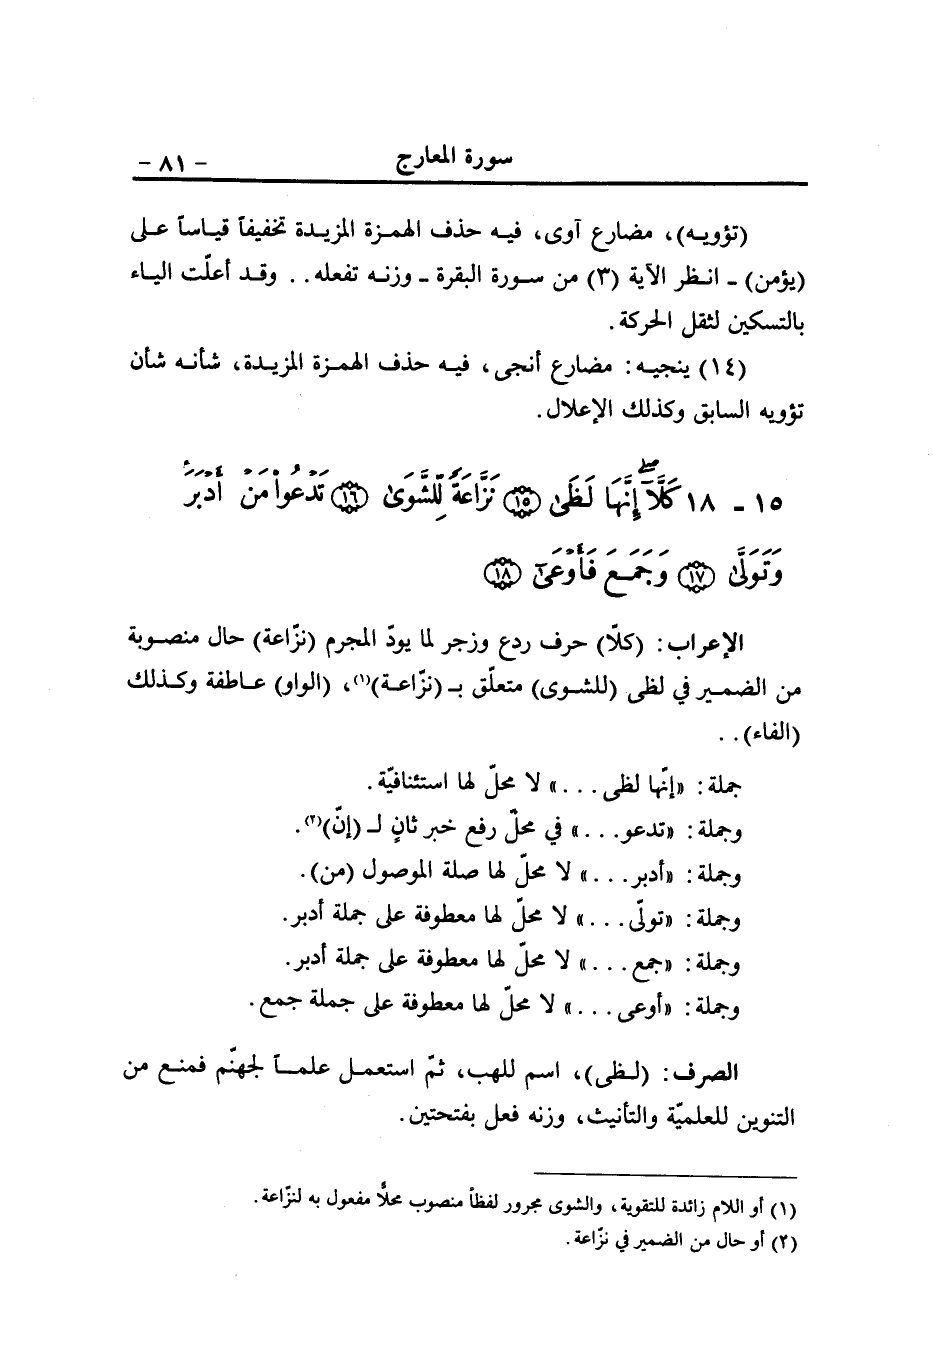 سورة المعارج - ٨١ -
(تؤويه)، مضارع آوى، فيه حذف الهمزة المزيدة تخفيفاً قياساً على
(يؤمن) - انظر الآية (٣) من سورة البقرة - وزنه تفعله.. وقد أعلّت الياء
بالتسكين لثقل الحركة.
(١٤) ينجيه: مضارع أنجى، فيه حذف الهمزة المزيدة، شأنه شأن
تؤويه السابق وكذلك الإعلال.
١٥ - ١٨ كَلَّآ إِنَّهَا لَظَىٰ ١٥ نَزَّاعَةً لِّلشَّوَىٰ ١٦ تَدْعُوا۟ مَنْ أَدْبَرَ
وَتَوَلَّىٰ ١٧ وَجَمَعَ فَأَوْعَىٰٓ ١٨
الإعراب: (كلّا) حرف ردع وزجر لما يودّ المجرم (نزّاعة) حال منصوبة
من الضمير في لظى (للشوى) متعلّق بـ (نزّاعة)(١)، (الواو) عاطفة وكذلك
(الفاء)..
جملة: «إنّها لظى...» لا محلّ لها استئنافيّة.
وجملة: «تدعو...» في محلّ رفع خبر ثانٍ لـ (إنّ)(٢).
وجملة: «أدبر...» لا محلّ لها صلة الموصول (من).
وجملة: «تولّى...» لا محلّ لها معطوفة على جملة أدبر.
وجملة: «جمع...» لا محلّ لها معطوفة على جملة أدبر.
وجملة: «أوعى...» لا محلّ لها معطوفة على جملة جمع.
الصرف: (لظى)، اسم للهب، ثمّ استعمل علماً لجهنّم فمنع من
التنوين للعلميّة والتأنيث، وزنه فعل بفتحتين.
(١) أو اللام زائدة للتقوية، والشوى مجرور لفظاً منصوب محلًّا مفعول به لنزّاعة.
(٢) أو حال من الضمير في نزّاعة.